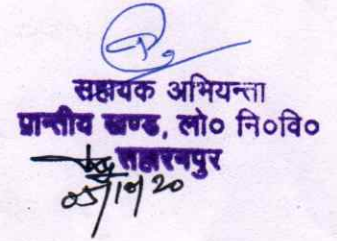 सहायक अभियन्ता
प्रान्तीय खण्ड, लो० नि०वि०
सहारनपुर
05/10/20